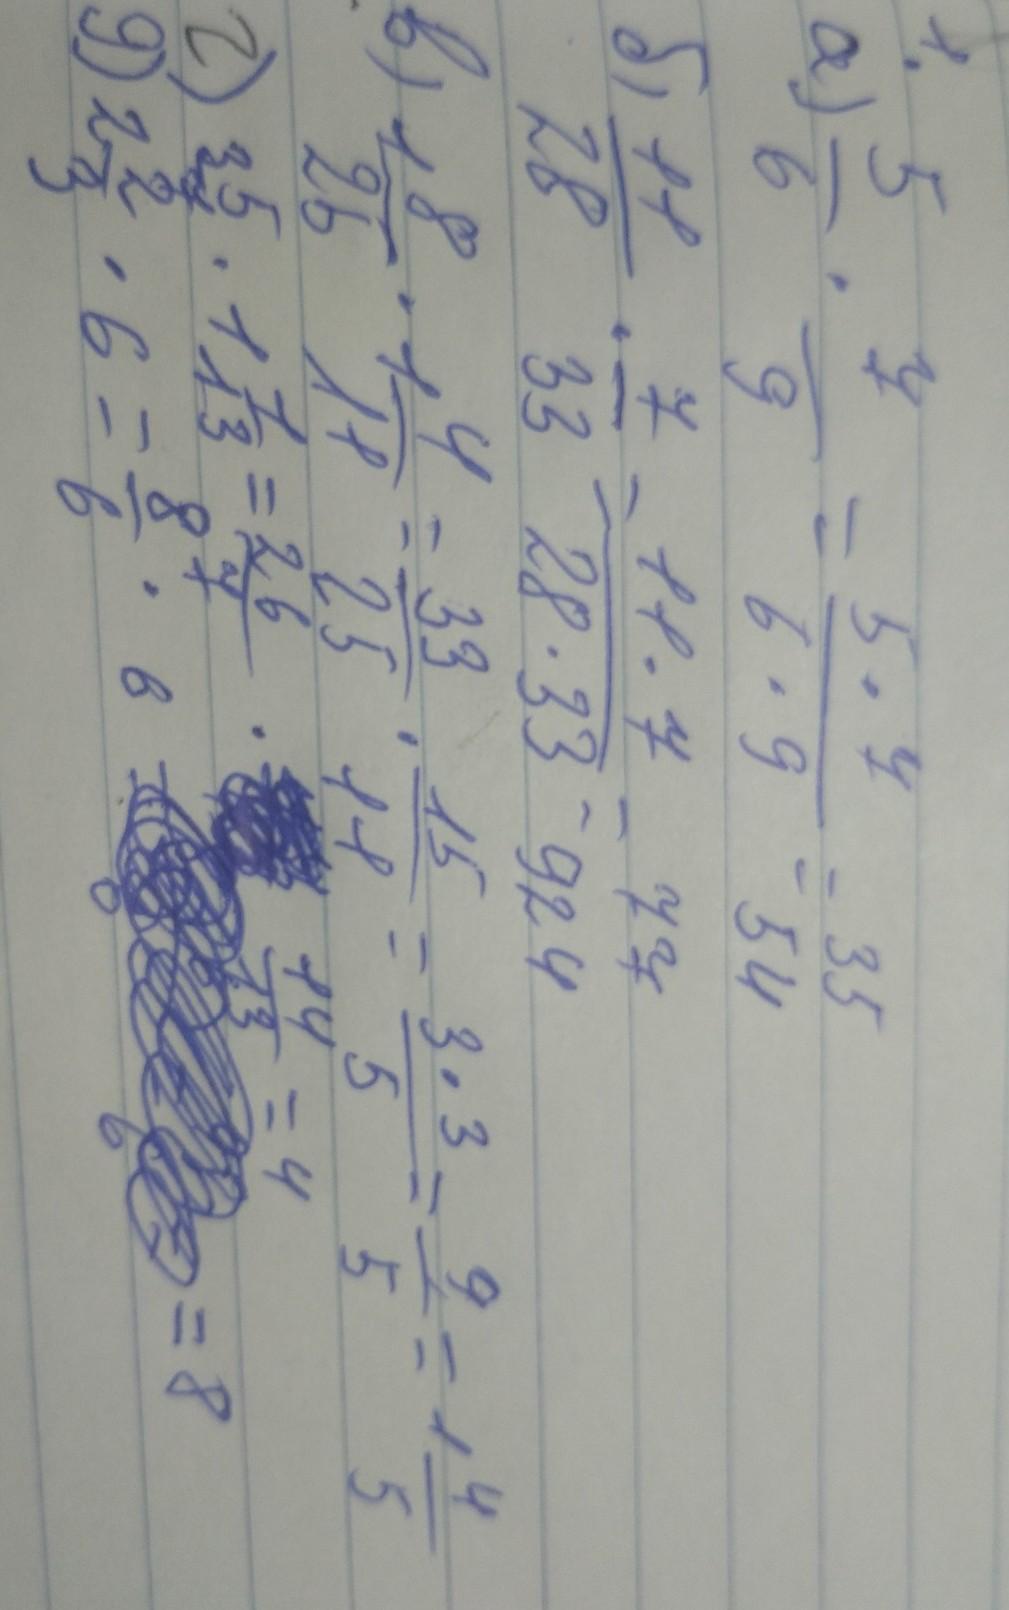 1.
а) 5/6 · 7/9 = 5·7/6·9 = 35/54
б) 11/28 · 7/33 = 11·7/28·33 = 77/924
в) 1 8/25 · 1 4/11 = 33/25 · 15/11 = 3·3/5 = 9/5 = 1 4/5
г) 3 5/7 · 1 1/13 = 26/7 · 14/13 = 4
д) 2 2/3 · 6 = 8/6 · 6 = 8